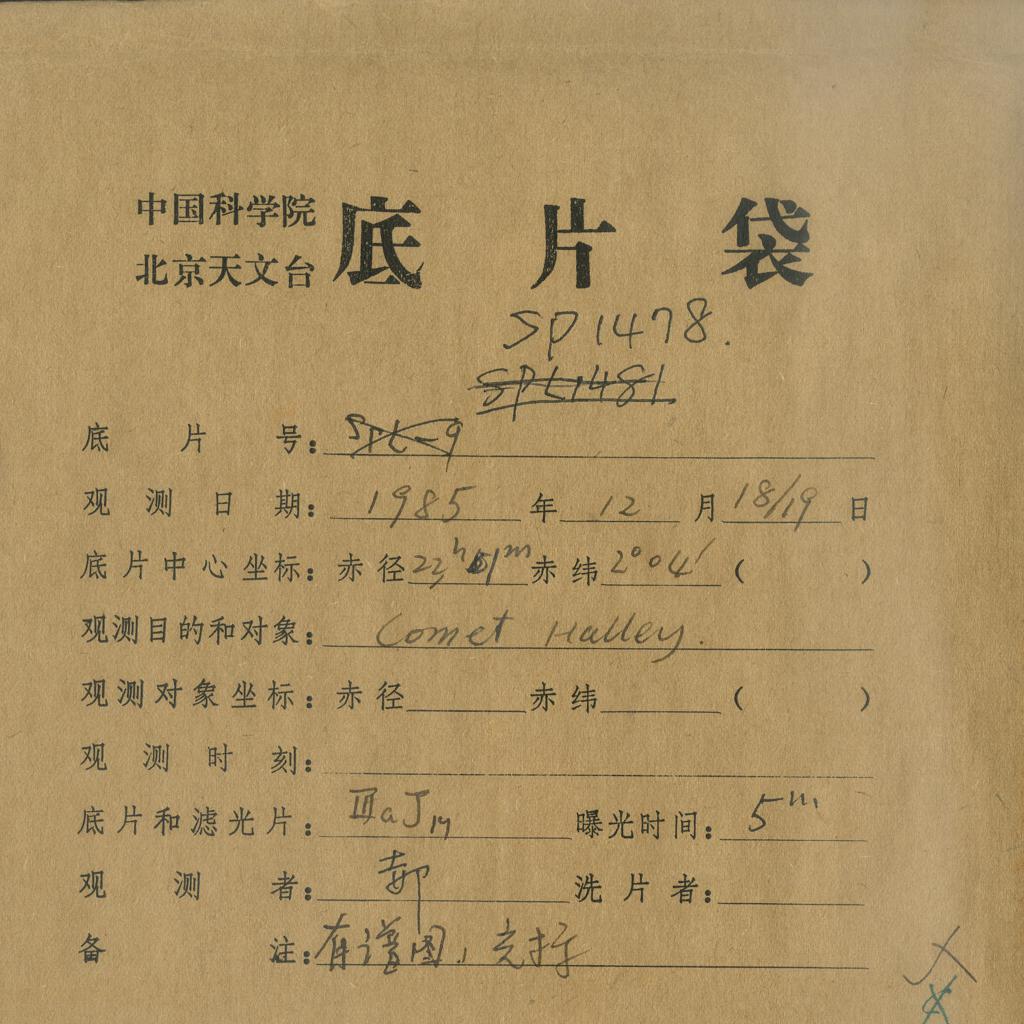 中国科学院
北京天文台
底片袋
SP1478.
SPL1481.
底片号：SPL-9
观测日期：1985年12月18/19日
底片中心坐标：赤径22h 51m赤纬2°04′（ ）
观测目的和对象：Comet Halley.
观测对象坐标：赤径 赤纬 （ ）
观测时刻：
底片和滤光片：ⅢaJ 曝光时间：5m
观测者： 洗片者：
备注：有谱图，